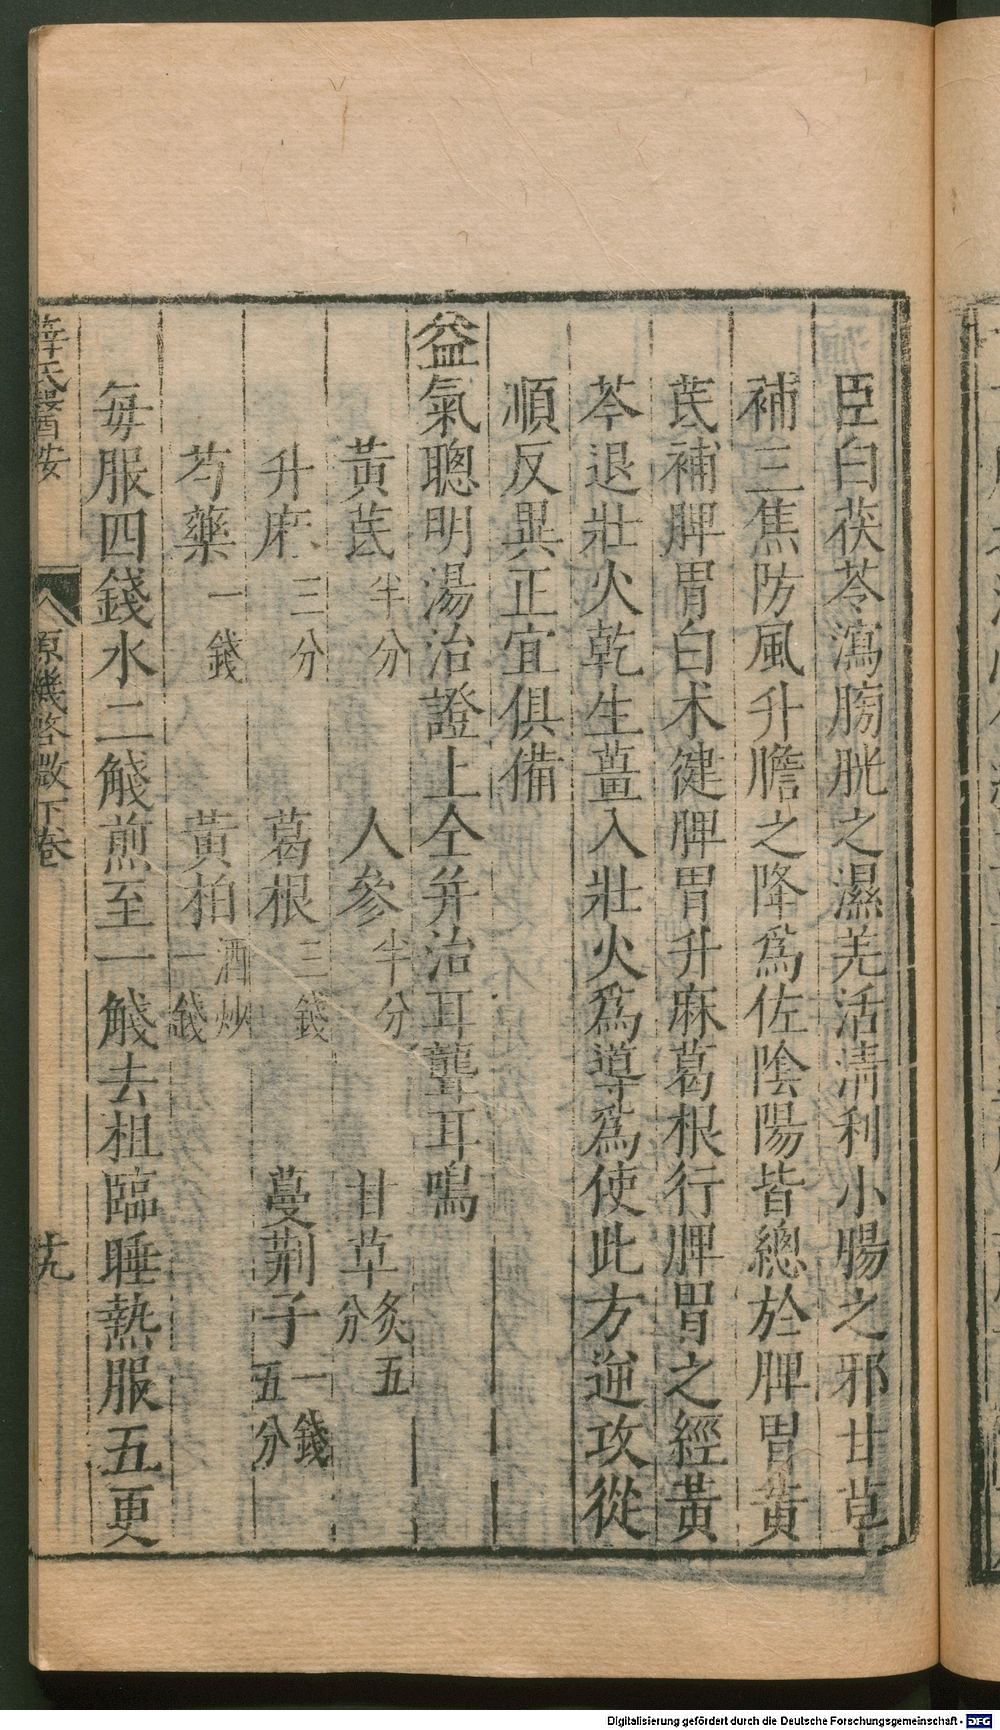 臣白茯苓瀉膀胱之濕羌活清利小腸之邪甘草
補三焦防風升膽之降爲佐陰陽皆總於脾胃黃
芪補脾胃白术健脾胃升麻葛根行脾胃之經黃
芩退壯火乾生薑入壯火爲導爲使此方逆攻從
順反異正宜俱備
益氣聰明湯治證上仝并治耳聾耳鳴
黃芪半分 人參半分 甘草炙五分
升麻三分 葛根三錢 蔓荆子一錢五分
芍藥一錢 黃柏酒炒一錢
每服四錢水二觮煎至一觮去柤臨睡熱服五更
薛氏醫按 原機啓微下卷 廿九
Digitalisierung gefördert durch die Deutsche Forschungsgemeinschaft - DFG